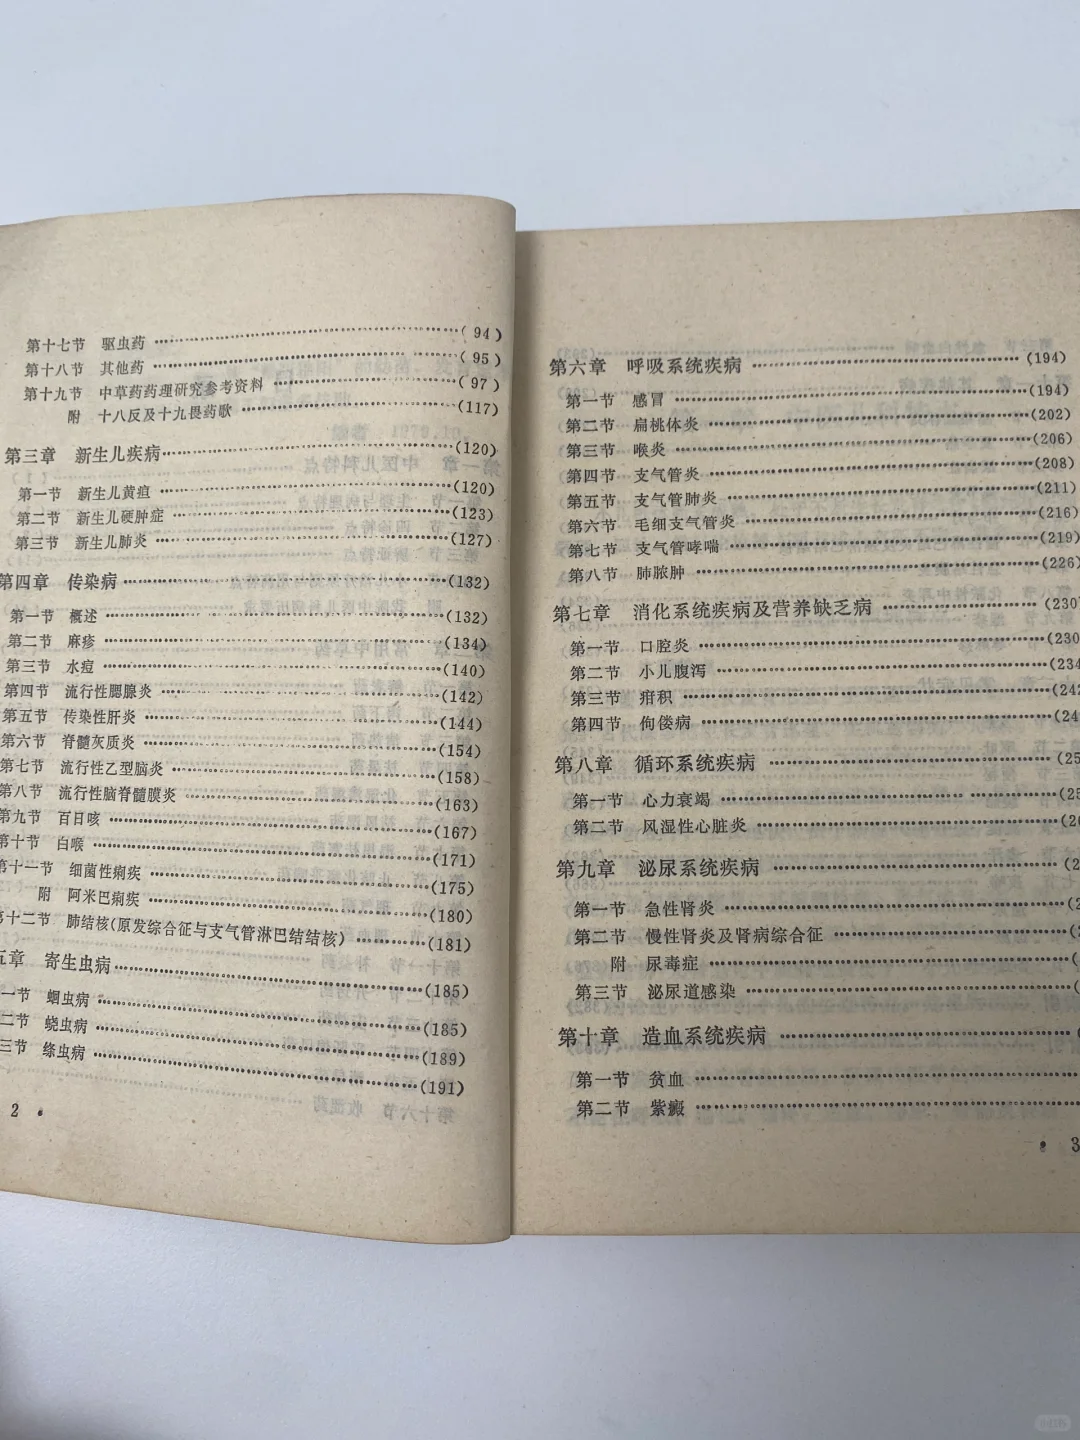 第十七节 驱虫药 (94)
第十八节 其他药 (95)
第十九节 中草药药理研究参考资料 (97)
附 十八反及十九畏药歌 (117)
第三章 新生儿疾病 (120)
第一节 新生儿黄疸 (120)
第二节 新生儿硬肿症 (123)
第三节 新生儿肺炎 (127)
第四章 传染病 (132)
第一节 概述 (132)
第二节 麻疹 (134)
第三节 水痘 (140)
第四节 流行性腮腺炎 (142)
第五节 传染性肝炎 (144)
第六节 脊髓灰质炎 (154)
第七节 流行性乙型脑炎 (158)
第八节 流行性脑脊髓膜炎 (163)
第九节 百日咳 (167)
第十节 白喉 (171)
第十一节 细菌性痢疾 (175)
附 阿米巴痢疾 (180)
第十二节 肺结核(原发综合征与支气管淋巴结结核) (181)
五章 寄生虫病 (185)
一节 蛔虫病 (185)
二节 蛲虫病 (189)
三节 绦虫病 (191)
2 •
第六章 呼吸系统疾病 (194)
第一节 感冒 (194)
第二节 扁桃体炎 (202)
第三节 喉炎 (206)
第四节 支气管炎 (208)
第五节 支气管肺炎 (211)
第六节 毛细支气管炎 (216)
第七节 支气管哮喘 (219)
第八节 肺脓肿 (226)
第七章 消化系统疾病及营养缺乏病 (230)
第一节 口腔炎 (230
第二节 小儿腹泻 (234
第三节 疳积 (242
第四节 佝偻病 (24
第八章 循环系统疾病 (25
第一节 心力衰竭 (25
第二节 风湿性心脏炎 (26
第九章 泌尿系统疾病 (2
第一节 急性肾炎 (2
第二节 慢性肾炎及肾病综合征 (2
附 尿毒症 (
第三节 泌尿道感染 (
第十章 造血系统疾病
第一节 贫血
第二节 紫癜
• 3